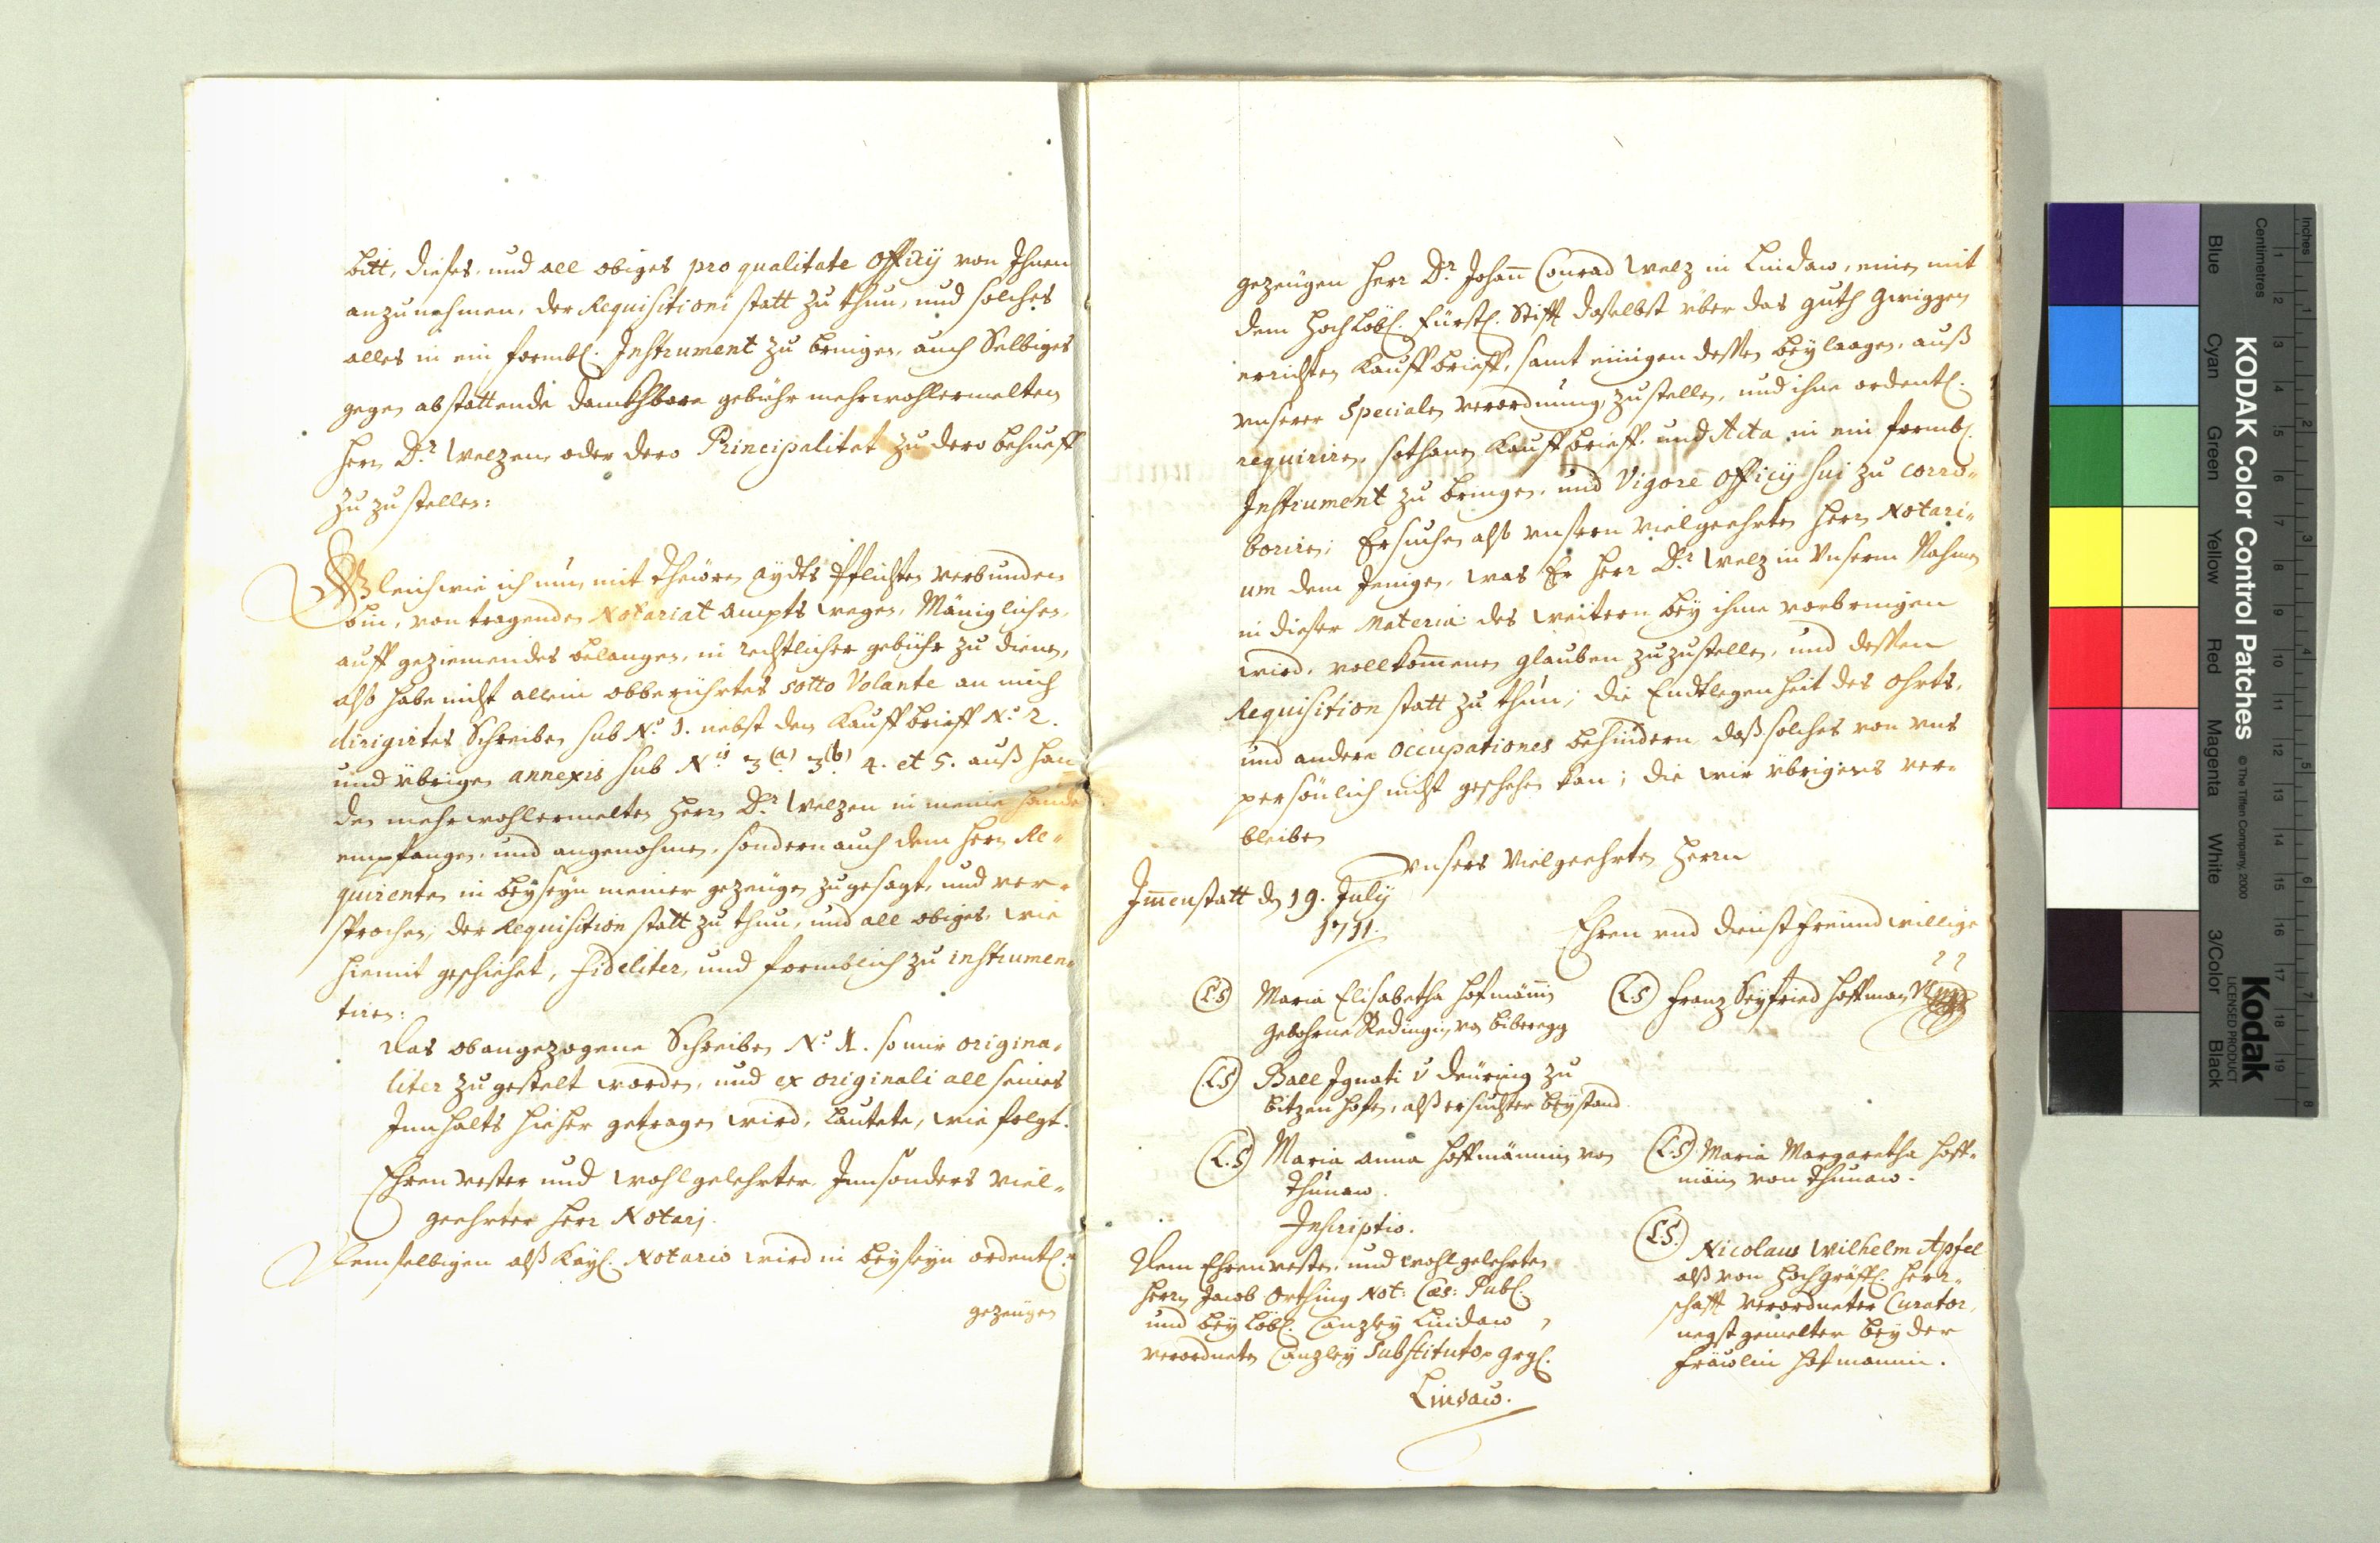 bitt, dieses, und all obiges pro qualitate Officij von Ihnen
anzunehmen, der Requisitioni statt zu thun, und solches
alles in ein formbl. Instrument zu bringen, auch Selbiges
gegen abstattende danckhbare gebühr mehrwohlermelten
Herrn Dr. Welzen oder dero Principalitet zu dero behueff
zu zustellen:
Gleich wie ich nun mit theüren aydts Pflichten verbunden
bin, von tragenden Notariat ampts wegen, Mäniglichen,
auff geziemendes belangen, in rechtlicher gebühr zu dienen,
alß habe nicht allein obberührtes sotto Volante an mich
dirigirtes Schreiben sub No. 1. nebst den Kauffbrieff No. 2.
und übrigen annexis sub Nis 3(a) 3(b) 4. et 5. auß han
den mehrwohlermelten Herrn Dr. Welzen in meine hände
empfangen, und angenohmen, sondern auch dem Herrn Re-
quirenten in beyseyn meiner gezeügen zugesagt, und ver-
sprochen, der Requisition statt zu thun, und all obiges, wie
hiemit geschiehet, fideliter, und formblich zu instrumen-
tiren:
Das obangezogene Schreiben No. 1. so mir origina-
liter zugestelt worden, und ex originali all seines
Innhalts hieher getragen wird, lautete, wie folgt.
Ehrenvester und wohlgelehrter Innsonders viel-
geehrter Herr Notarj.
Demselbigen alß Kayl. Notario wird in beyseyn ordentl.
gezeügen
gezeügen Herr Dr. Johann Conrad Welz in Lindaw, einen mit
dem Hochlöbl. Fürstl. Stifft daselbst über das Guth Gwiggen
errichten Kauffbrieff, samt einigen dessen beylaagen, auß
unserer Specialen verordnung, zustellen, und ihne ordentl.
requiriren, sothanen Kauffbrieff, und Acta in ein formbl.
Instrument zu bringen, und Vigore Officij sui zu corro-
boriren; Ersuchen alß unsern vielgeehrten Herrn Notari-
um dem Jenigen, was Er Herr Dr. Welz in Unserm Nahmen
in dieser Materia des weitern bey ihme vorbringen
wird, vollkommenen glauben zuzustellen, und dessen
Requisition statt zu thun; die Endtlegenheit des ohrts,
und andere Occupationes behindern, daß solches von uns
persönlich nicht geschehen kan; die wir übrigens ver-
bleiben
Unsers Vielgeehrten Herrn
Immenstatt den 19. July
1711.
Ehren und dienstfreundwillige
(L.S) Maria Elisabetha Hofmännin
gebohrne Redingin von Biberegg
(L.S) Franz Seyfried Hoffman
(L.S) Ball Ignati v Deüring zu
Bitzenhofen, alß ersuchter beystand
(L.S) Maria Anna Hoffmännin von
Thunaw.
(L.S) Maria Margaretha Hoff-
männin von Thunaw.
Inscriptio.
Dem Ehrenvesten, und wohlgelehrten
Herrn Jacob Orthing Not: Cæs: Publ.
und bey Löbl. Canzley Lindaw
verordneten Canzley Substituto
Lindaw.
(L.S.) Nicolaus Wilhelm Apfel
alß von Hochgräffl. Herr-
schafft verordneter Curator,
negst gemelter beyder
Fräwlin Hofmännin.
KODAK Color Control Patches
© The Tiffen Company, 2000
Kodak
LICENSED PRODUCT
Inches
Centimetres
Blue
Cyan
Green
Yellow
Red
Magenta
White
3/Color
Black